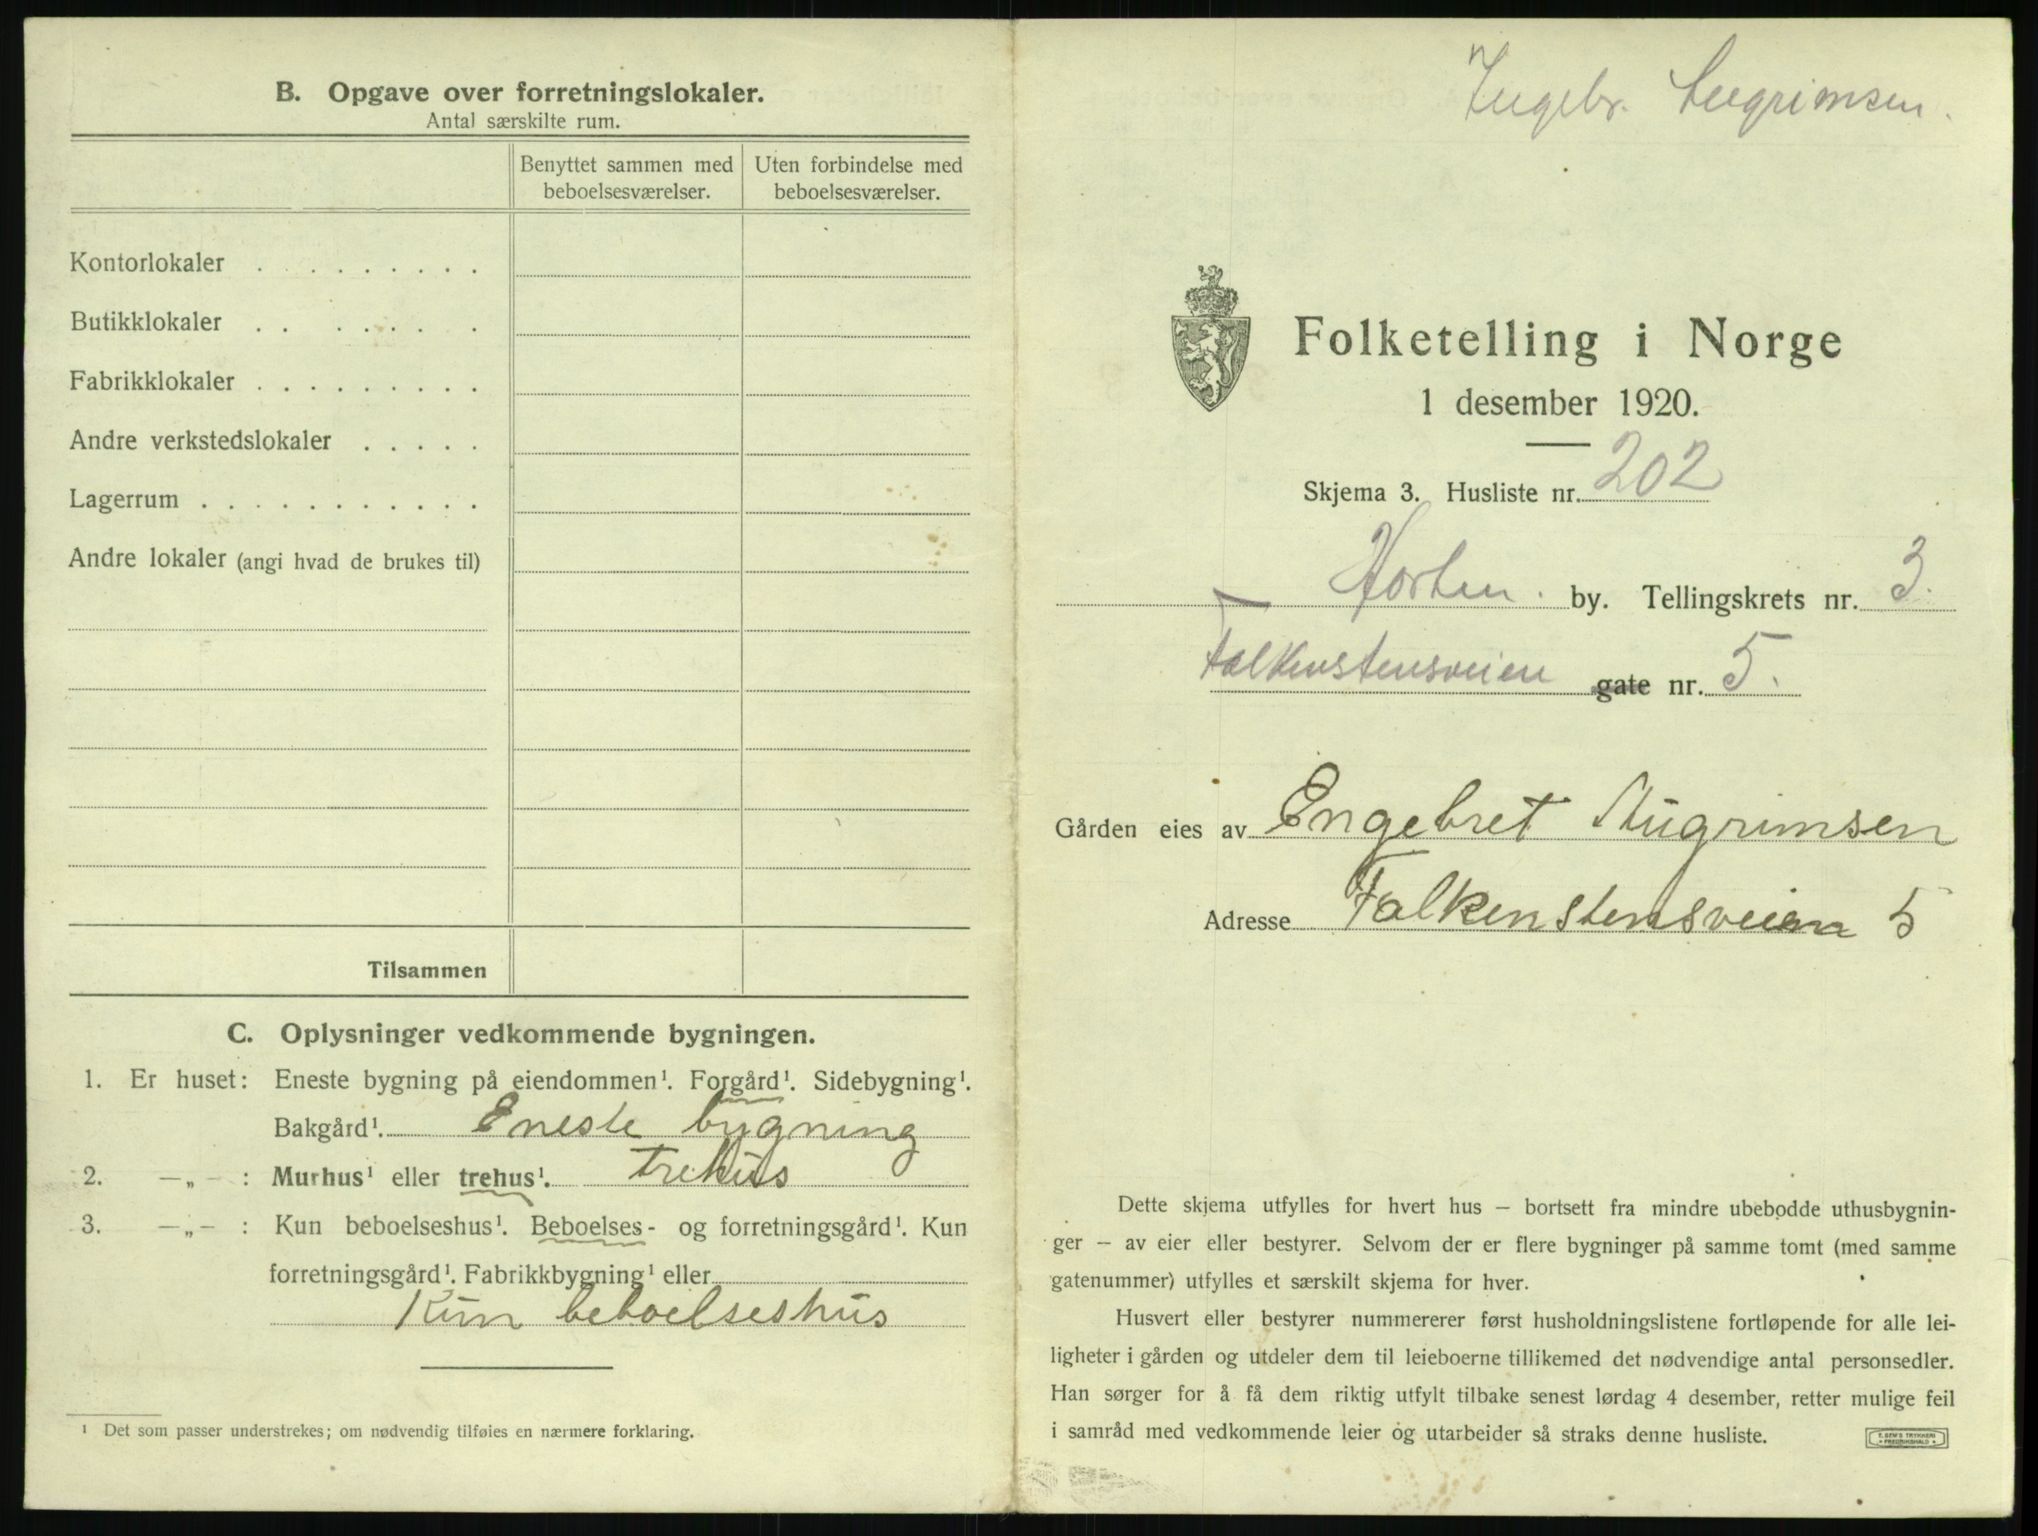 B. Opgave over forretningslokaler.
Antal særskilte rum.
Benyttet sammen med beboelsesværelser.
Uten forbindelse med beboelsesværelser.
Kontorlokaler . . . . . . . . .
Butikklokaler . . . . . . . .
Fabrikklokaler . . . . . . . . .
Andre verkstedslokaler . . . . .
Lagerrum . . . . . . . . . . .
Andre lokaler (angi hvad de brukes til)
Tilsammen
C. Oplysninger vedkommende bygningen.
1. Er huset: Eneste bygning på eiendommen¹. Forgård¹. Sidebygning¹.
Bakgård¹. Eneste bygning
2. —„— : Murhus¹ eller trehus¹. trehus
3. —„— : Kun beboelseshus¹. Beboelses- og forretningsgård¹. Kun
forretningsgård¹. Fabrikkbygning¹ eller
Kun beboelseshus
¹ Det som passer understrekes; om nødvendig tilføies en nærmere forklaring.
Ingebr.
Folketelling i Norge
1 desember 1920.
Skjema 3. Husliste nr. 202
Horten. by. Tellingskrets nr. 3.
Falkenstensveien gate nr. 5.
Gården eies av Engebret
Adresse Falkenstensveien 5
Dette skjema utfylles for hvert hus – bortsett fra mindre ubebodde uthusbygnin-
ger – av eier eller bestyrer. Selvom der er flere bygninger på samme tomt (med samme
gatenummer) utfylles et særskilt skjema for hver.
Husvert eller bestyrer nummererer først husholdningslistene fortløpende for alle lei-
ligheter i gården og utdeler dem til leieboerne tillikemed det nødvendige antal personsedler.
Han sørger for å få dem riktig utfylt tilbake senest lørdag 4 desember, retter mulige feil
i samråd med vedkommende leier og utarbeider så straks denne husliste.